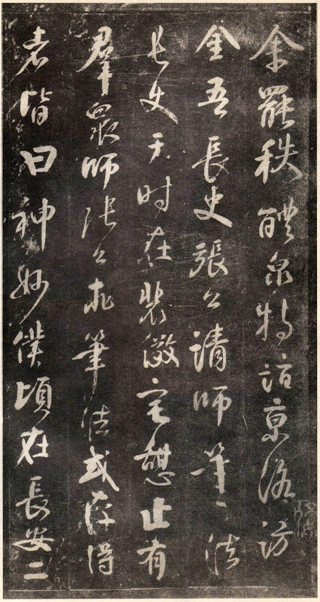 余罷秩醴泉特詣京洛訪
金吾長史張公請師筆法
長史于时在裴儆宅憩止有
羣眾師張公求筆法或存得
者皆曰神妙僕頃在長安二